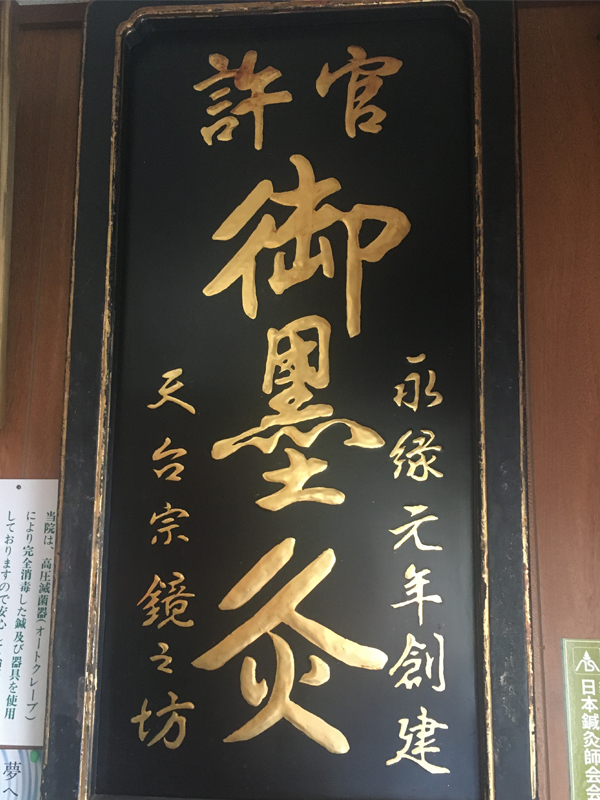 官許
御墨灸
永縁元年創建
天台宗鏡之坊
当院は、高圧滅菌器(オートクレーブ)
により完全消毒した鍼及び器具を使用
しておりますので安心し
夢へ
日本鍼灸師会会